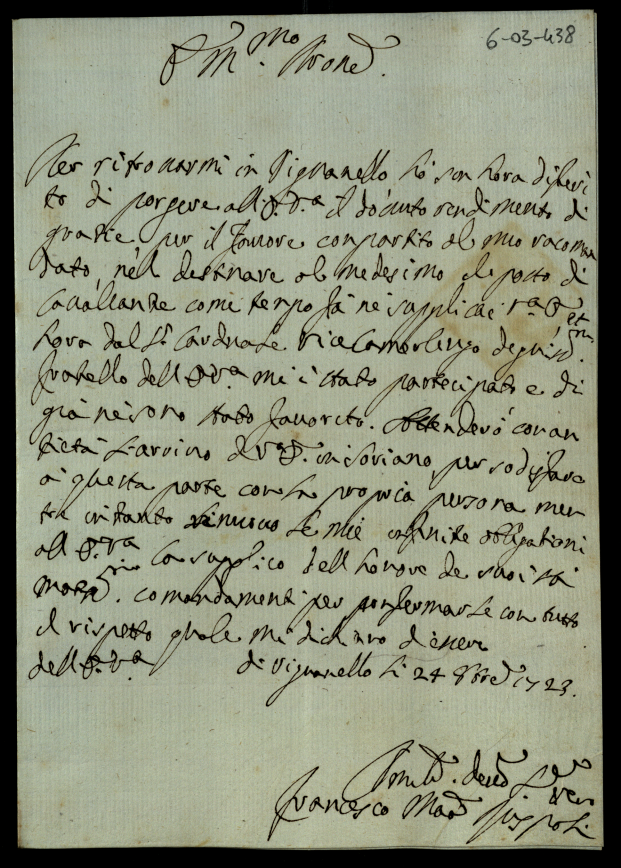 6-03-438
Ill.mo Prone
Per ritrouarmi in Vignanello hò sin hora diferi
to di porgere all V.a il douuto rendimento di
gratie per il fauore compartito al mio racoman
dato, nel destinare al medesimo il posto di
Cauallante come tempo fà ne supplicai
hora dal S.r Cardinale Vice Camerlengo degniss.
fratello dell V.a mi è stato partecipato e di
già ne sono stato fauorito. Attenderò con an
sietà l'arriuo in Soriano, per sodisfare
à questa parte con la propria persona men
tre intanto le mie infinite obligationi
all V.ra la supplico dell honore de suoi sti
matis.mi comandamenti per confermarle con tutto
il rispetto quale mi dichiaro d'essere
dell V.a di Vignanello li 24 8bre 1723.
Vero
Francesco Maria Ruspoli